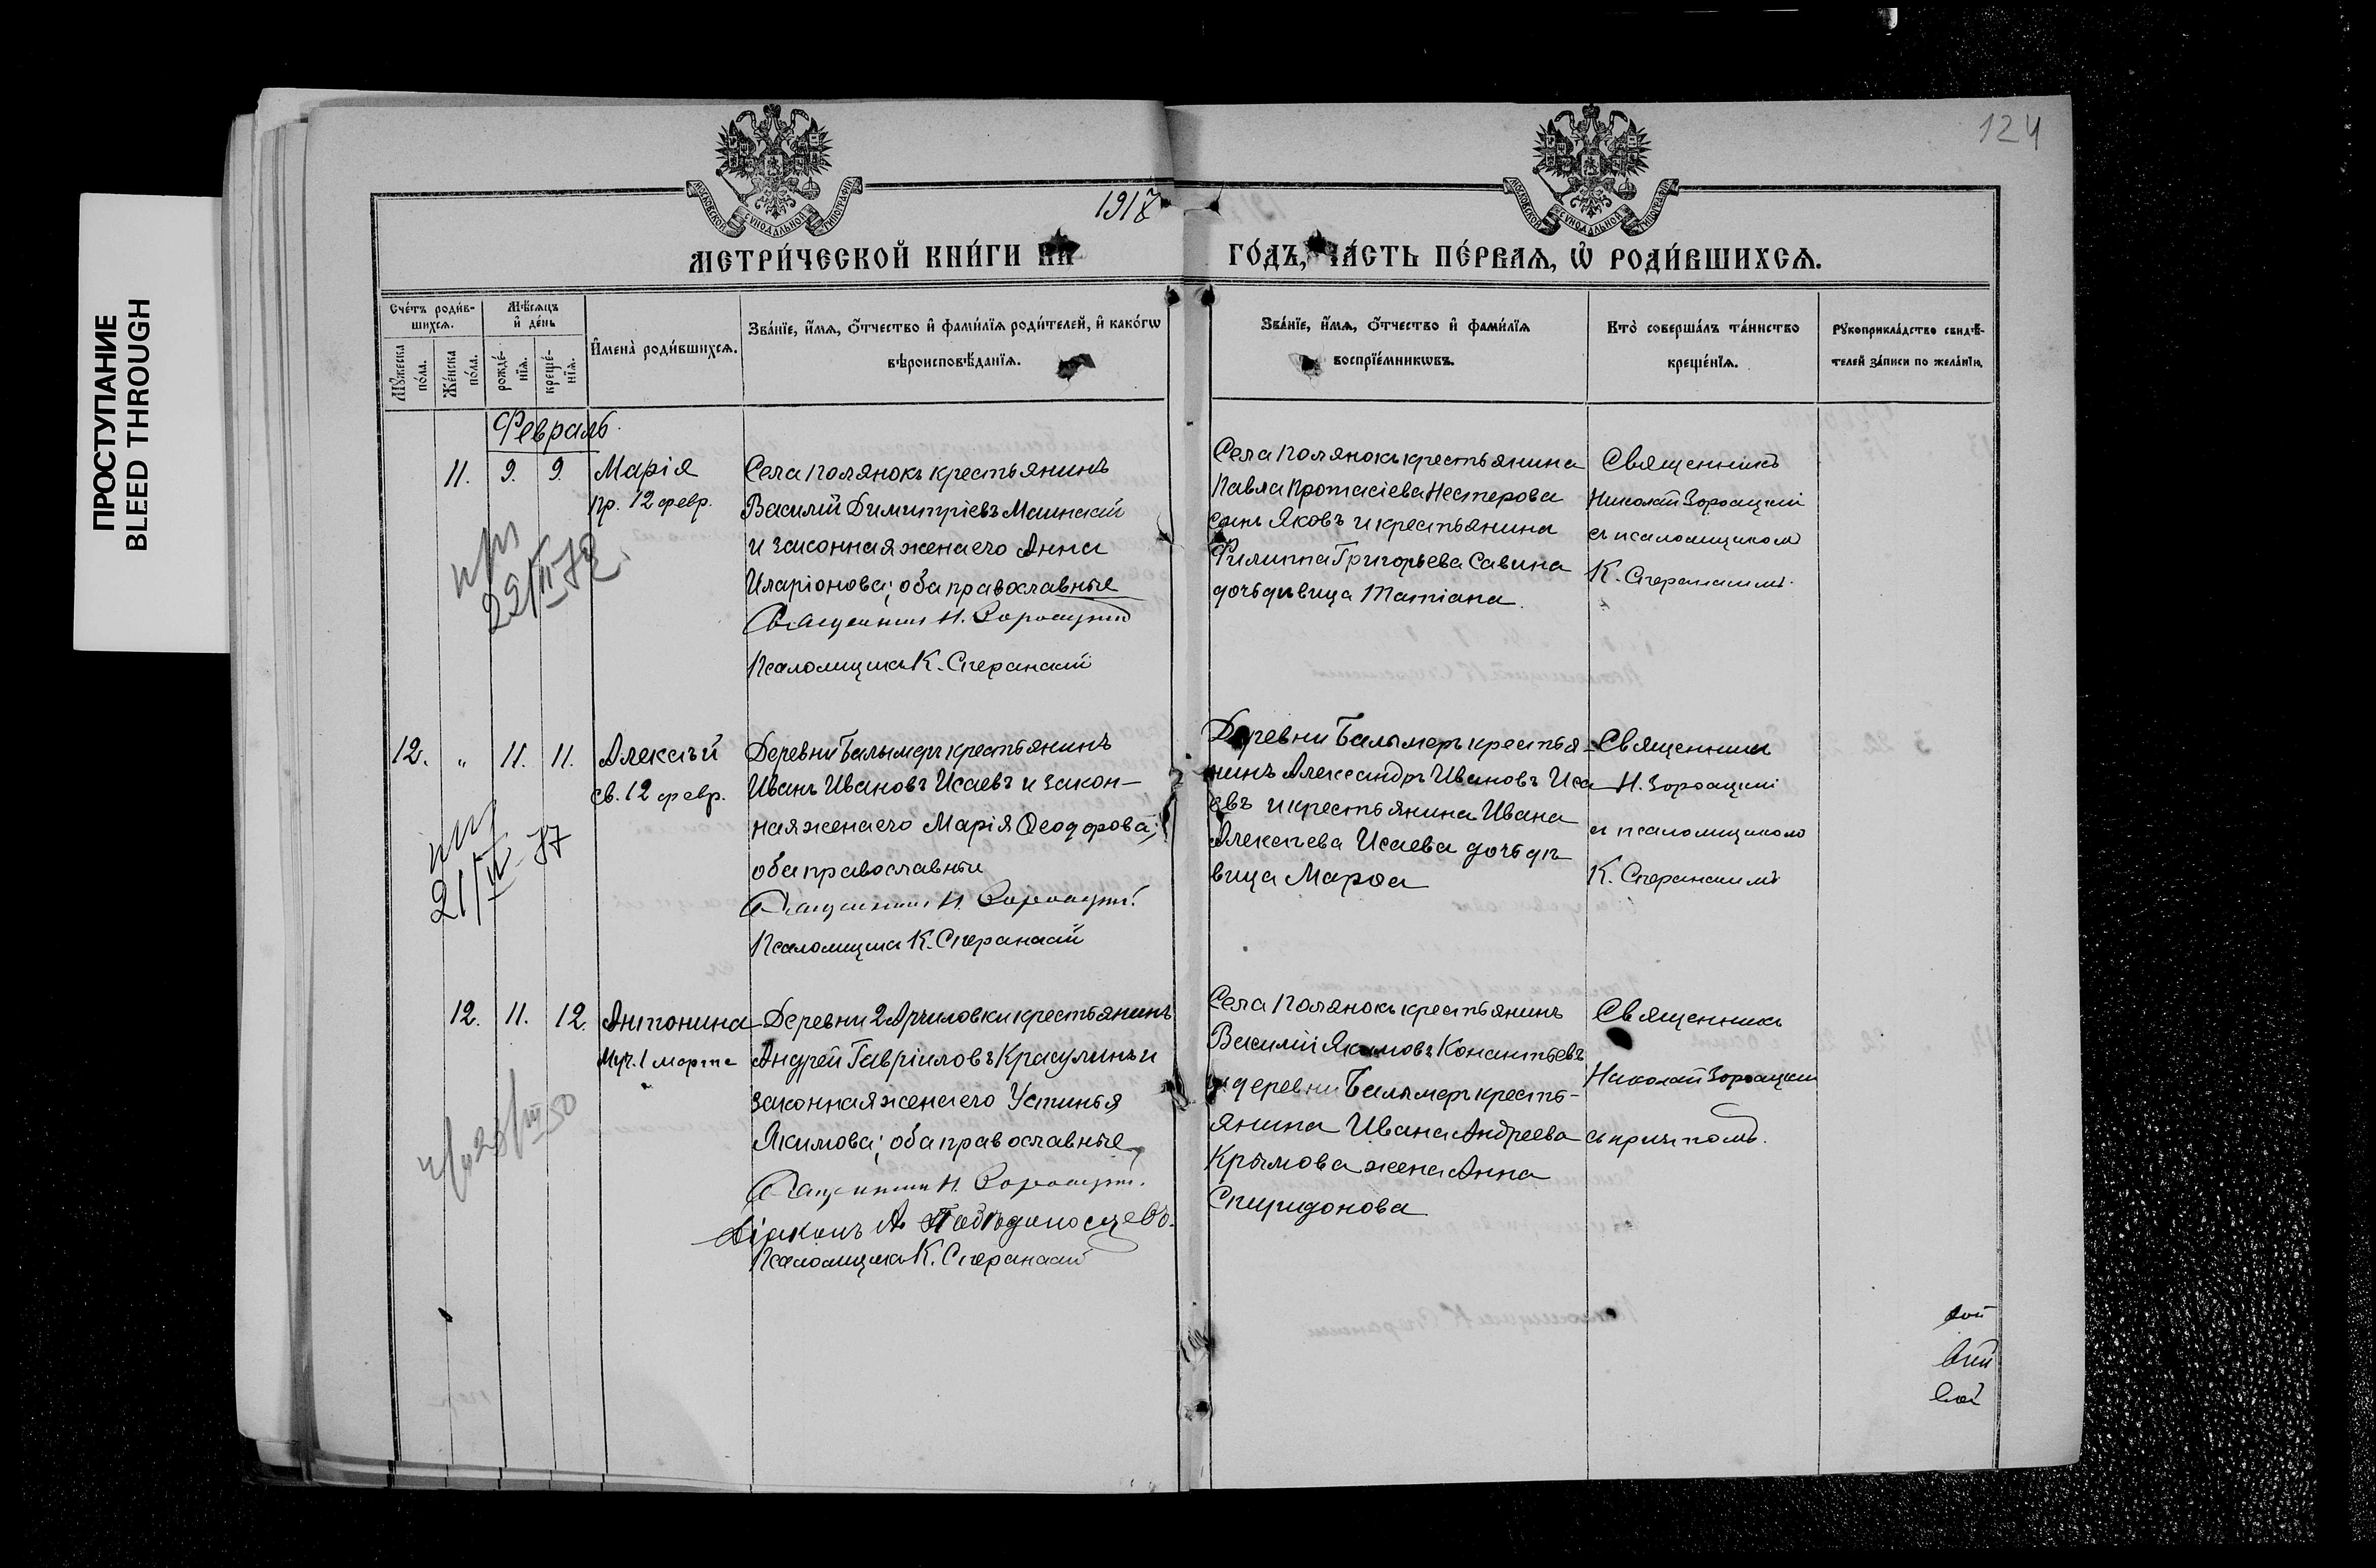 ПРОСТУПАНИЕ
BLEED THROUGH
124
МОСКОВСКОЙ СѴНОДАЛЬНОЙ ТИПОГРАФІИ
МОСКОВСКОЙ СѴНОДАЛЬНОЙ ТИПОГРАФІИ
1917
МЕТРИ́ЧЕСКОЙ КНИ́ГИ НА
ГО́ДЪ, ЧА́СТЬ ПЕ́РВАЯ, Ѡ҆ РОДИ́ВШИХСЯ.
Сче́тъ роди́в-
шихся.
Мѣ́сяцъ
и҆ де́нь
Мꙋ́жеска
по́ла.
Же́нска
по́ла.
рожде́-
нїя.
креще́-
нїя.
И҆мена̀ роди́вшихся.
Зва́нїе, и҆́мя, ѻ҆́тчество и҆ фами́лїя роди́телей, и҆ како́гѡ
вѣроисповѣ́данїя.
Зва́нїе, и҆́мя, ѻ҆́тчество и҆ фами́лїя
воспрїе́мникѡвъ.
Кто̀ соверша́лъ та́инство
креще́нїя.
Рꙋкоприкла́дство свидѣ́-
телей за́писи по жела́нїю.
Февраль
11. 9. 9. Марія
пр. 12 февр.
22/II-72
Села Полянокъ крестьянинъ
Василій Димитріевъ Маинский
и законная жена его Анна
Иларіонова; оба православные
Священник Н. Зороацкій
Псаломщикъ К. Сперанский
Села Полянокъ крестьянина
Павла Протасіева Нестерова
сынъ Яковъ и крестьянина
Филиппа Григорьева Савина
дочь дѣвица Татіана.
Священникъ
Николай Зороацкій
съ псаломщикомъ
К. Сперанскимъ.
12. " 11. 11. Алексѣй
св. 12 февр.
21/IV-77
Деревни Балымеръ крестьянинъ
Иванъ Ивановъ Исаевъ и закон-
ная жена его Марія Ѳеодорова;
оба православные
Священник Н. Зороацкій
Псаломщикъ К. Сперанский
Деревни Балымеръ крестья-
нинъ Александръ Ивановъ Иса
евъ и крестьянина Ивана
Алексѣева Исаева дочь дѣ
вица Марѳа
Священникъ
Н. Зороацкій
съ псаломщикомъ
К. Сперанскимъ
12. 11. 12. Антонина
Муч. 1 марта
Деревни 2 Арчиловки крестьянинъ
Андрей Гавріиловъ Красулинъ и
законная жена его Устинья
Якимова; оба православные
Священник Н. Зороацкій
Діаконъ А Побѣдоносцевъ.
Псаломщикъ К. Сперанский
Села Полянокъ крестьянинъ
Василій Якимовъ
и деревни Балымеръ кресть-
янина Ивана Андреева
Крымова жена Анна
Спиридонова
Священникъ
Николай Зороацкій
съ причтомъ.